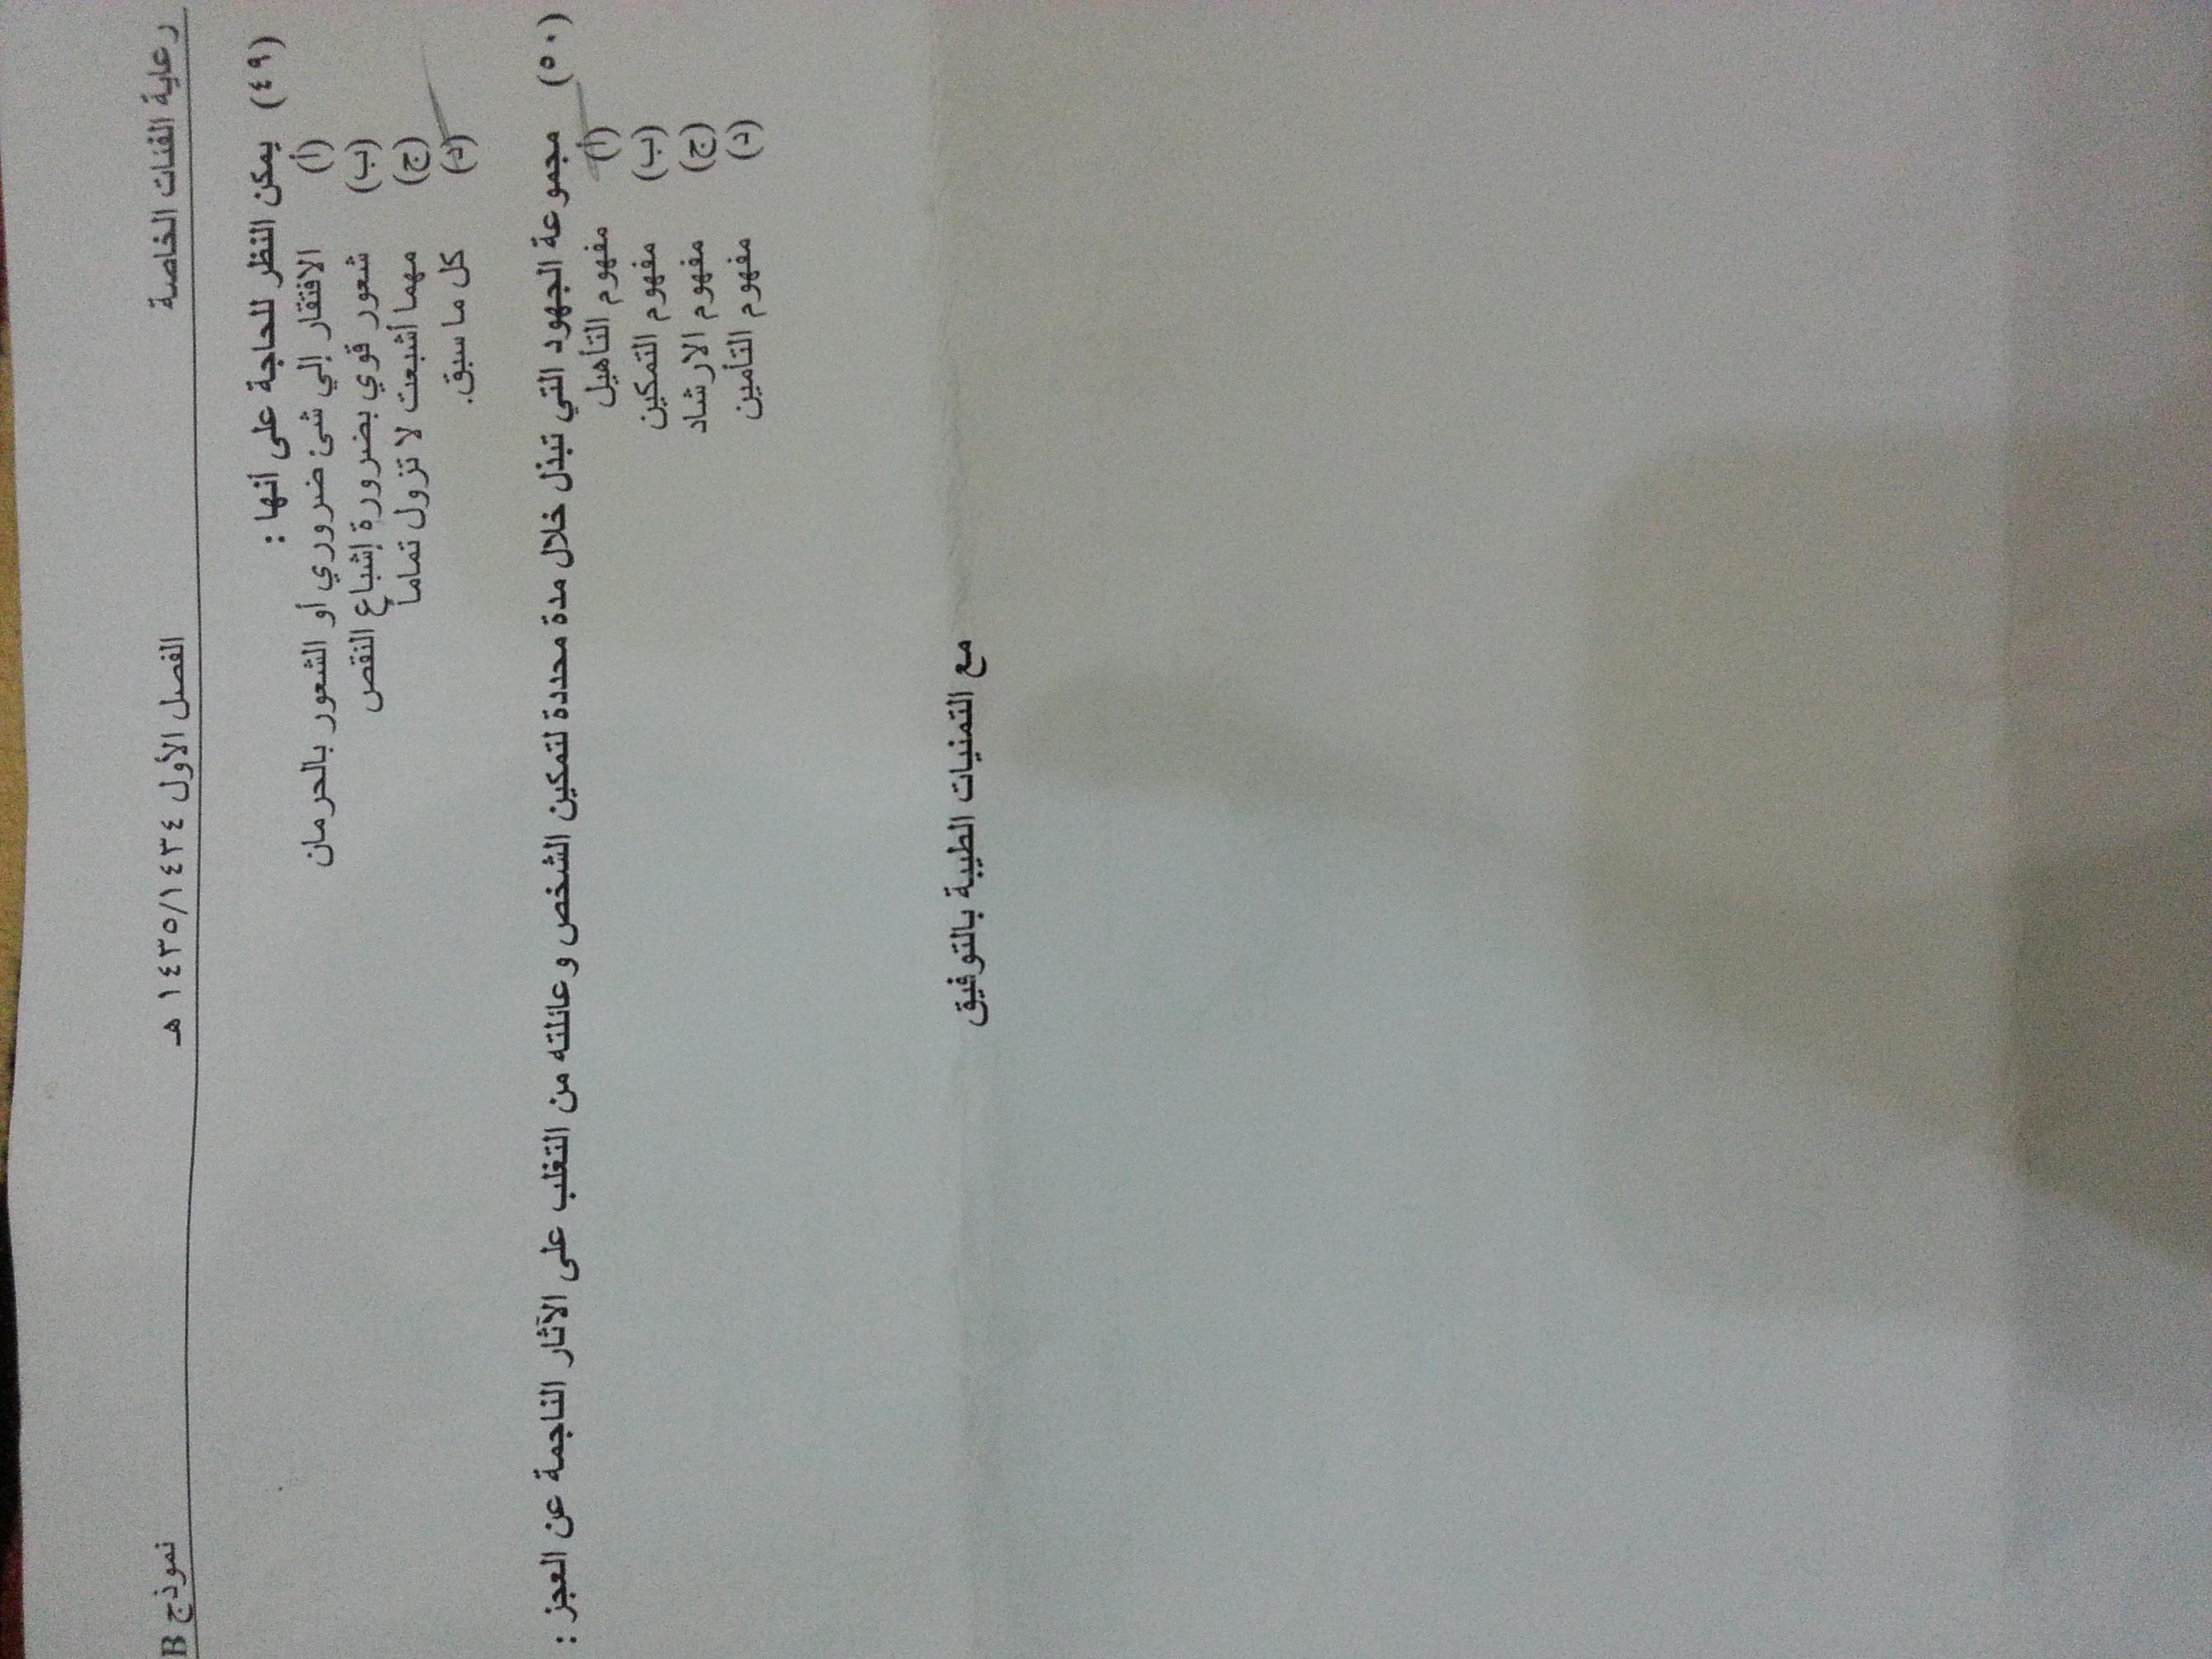 رعاية الفئات الخاصة الفصل الأول ١٤٣٥/١٤٣٤ هـ نموذج B
(٤٩) يمكن النظر للحاجة على أنها :
(أ) الافتقار إلي شئ ضروري أو الشعور بالحرمان
(ب) شعور قوي بضرورة إشباع النقص
(ج) مهما أشبعت لا تزول تماماً
(د) كل ما سبق.
(٥٠) مجموعة الجهود التي تبذل خلال مدة محددة لتمكين الشخص وعائلته من التغلب على الآثار الناجمة عن العجز :
(أ) مفهوم التأهيل
(ب) مفهوم التمكين
(ج) مفهوم الارشاد
(د) مفهوم التأمين
مع التمنيات الطيبة بالتوفيق